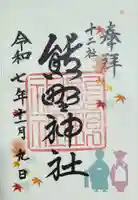 奉拝
十二社
熊野神社
令和七年十一月九日